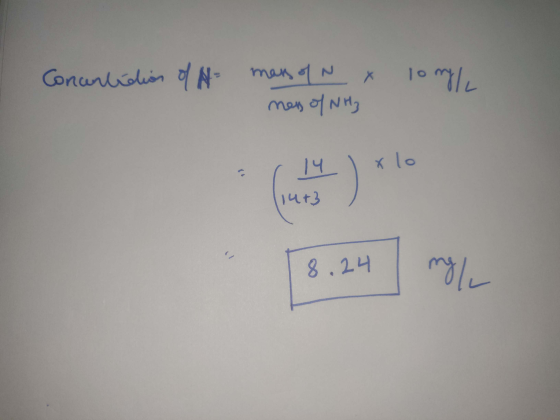 Concentration of N = mass of N / mass of NH3 × 10 mg/L
= (14 / 14+3) × 10
= 8.24 mg/L